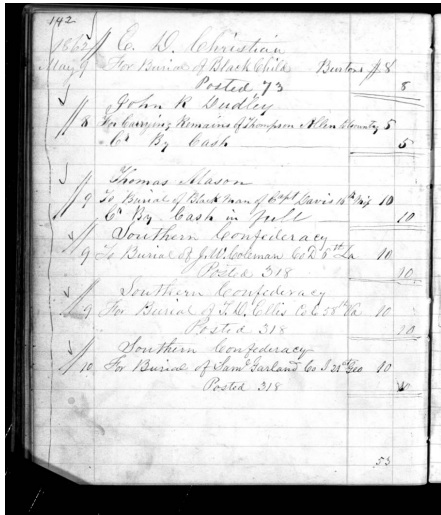 142
1863 E. D. Christian
May 9 For Burial of Black Child Burtons $8
Posted 73 8
John R Dudley
8 For Carrying Remains of Thompson Allen to County 5
" Cr By Cash 5
Thomas Mason
9 To Burial of Black man of Capt Davis 16th Mip 10
Cr By Cash in full 10
Southern Confederacy
9 To Burial of J. W. Coleman Co D 6th La 10
Posted 318 10
Southern Confederacy
9 For Burial of T. W. Ellis Co C 58th Va 10
Posted 318 10
Southern Confederacy
10 For Burial of Saml Garland Co I 21st Geo 10
Posted 318 10
53